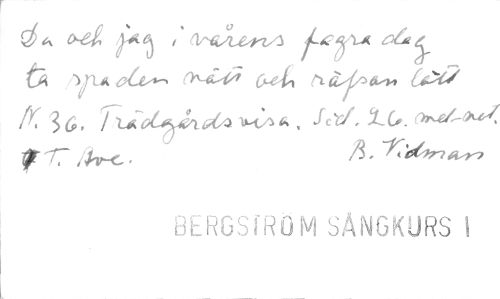 Du och jag i vårens fagra dag
ta spaden nätt och räfsan lätt
N. 36. Trädgårdsvisa. Sid. 26. met-net.
T. Ave. B. Vidman
BERGSTRÖM SÅNGKURS I